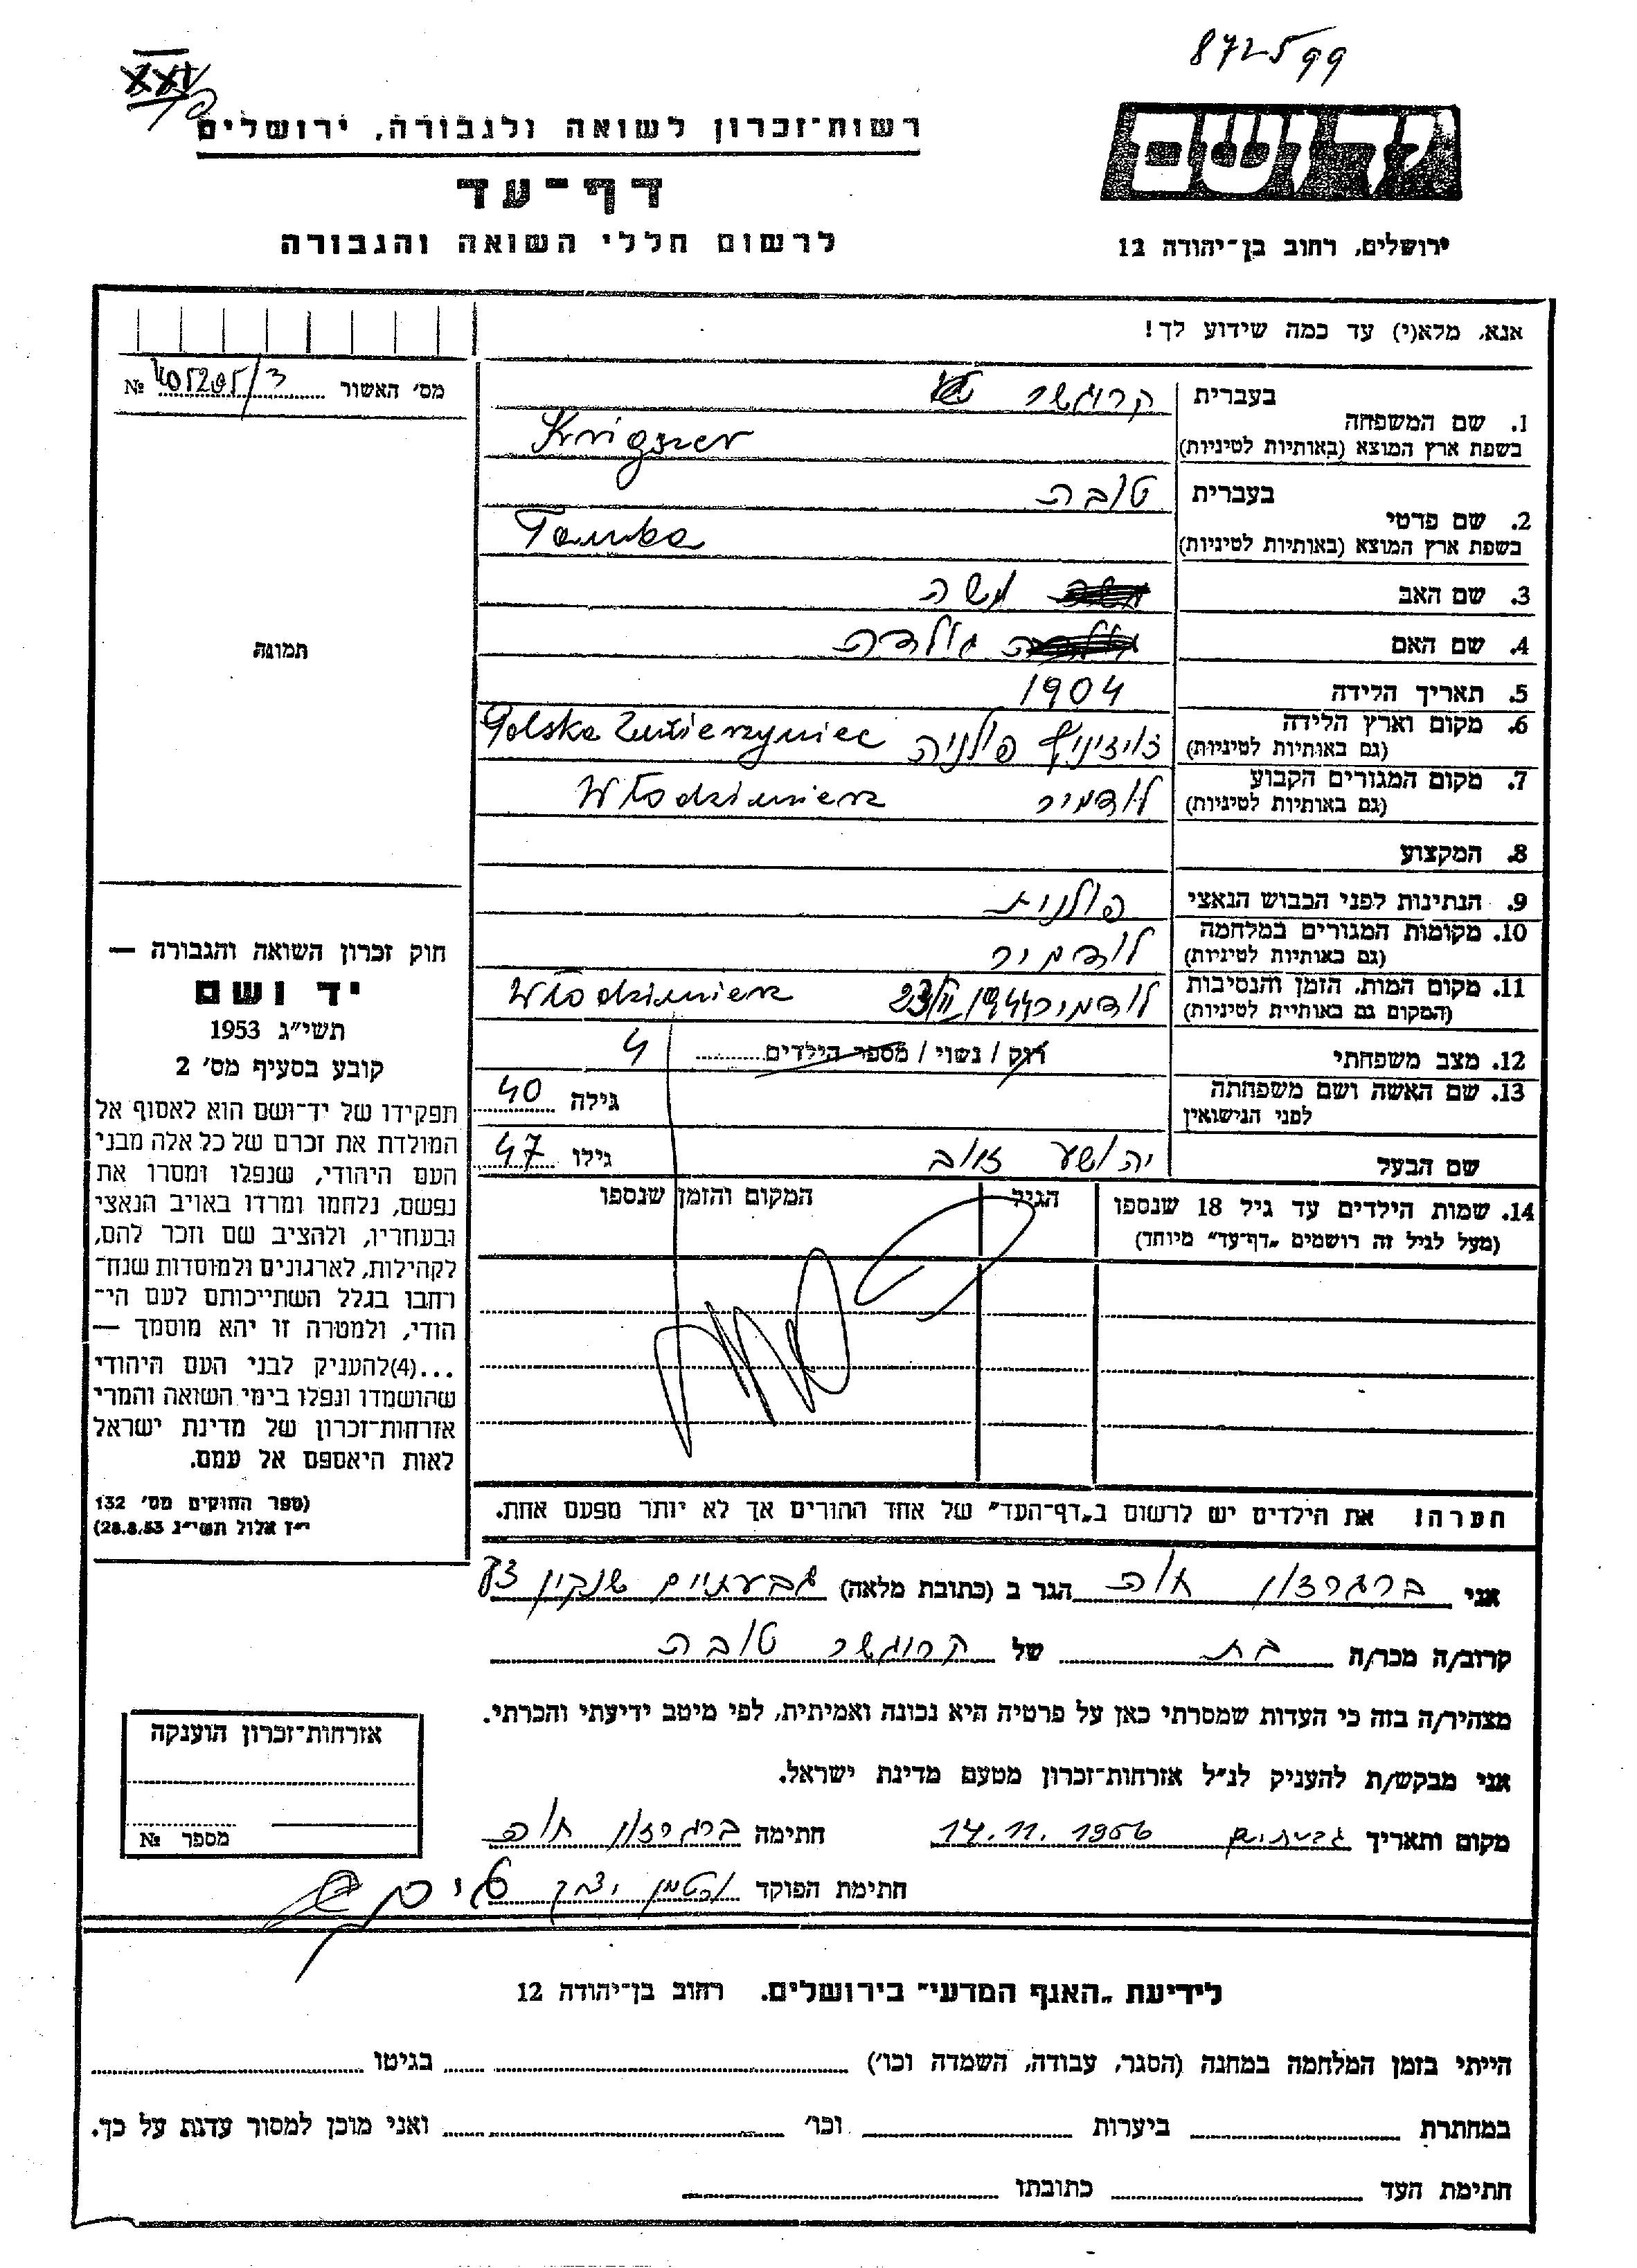 872599
XXV
יד ושם
רשות־זכרון לשואה ולגבורה, ירושלים
דף־עד
לרשום חללי השואה והגבורה
ירושלים, רחוב בן־יהודה 12
אנא, מלא(י) עד כמה שידוע לך!
מס׳ האשור № 405205/3
תמונה
1. שם המשפחה בעברית קרוגשר
בשפת ארץ המוצא (באותיות לטיניות) Krigszer
2. שם פרטי בעברית טובה
בשפת ארץ המוצא (באותיות לטיניות) Tauba
3. שם האב משה
4. שם האם גולדה
5. תאריך הלידה 1904
6. מקום וארץ הלידה (גם באותיות לטיניות) פולניה Polska Zwierzyniec
7. מקום המגורים הקבוע (גם באותיות לטיניות) לודמיר Włodzimierz
8. המקצוע
9. הנתינות לפני הכבוש הנאצי פולנית
10. מקומות המגורים במלחמה (גם באותיות לטיניות) לודמיר
11. מקום המות, הזמן והנסיבות (המקום גם באותיית לטיניות) לודמיר 23/II 1944 Włodzimierz
12. מצב משפחתי רוק / נשוי / מספר הילדים 4
13. שם האשה ושם משפחתה לפני הנישואין גילה 40
שם הבעל יהושע זאב גילו 47
14. שמות הילדים עד גיל 18 שנספו
(מעל לגיל זה רושמים „דף־עד״ מיוחד)
הגיל
המקום והזמן שנספו
חוק זכרון השואה והגבורה —
יד ושם
תשי״ג 1953
קובע בסעיף מס׳ 2
תפקידו של יד־ושם הוא לאסוף אל
המולדת את זכרם של כל אלה מבני
העם היהודי, שנפלו ומסרו את
נפשם, נלחמו ומרדו באויב הנאצי
ובעוזריו, ולהציב שם וזכר להם,
לקהילות, לארגונים ולמוסדות שנח־
רחבו בגלל השתייכותם לעם הי־
הודי, ולמטרה זו יהא מוסמך —
...(4)להעניק לבני העם היהודי
שהושמדו ונפלו בימי השואה והמרי
אזרחות־זכרון של מדינת ישראל
לאות היאספם אל עמם.
(ספר החוקים מס׳ 132
י״ז אלול תשי״ג 28.8.53)
הערה! את הילדים יש לרשום ב„דף־העד״ של אחד ההורים אך לא יותר מפעם אחת.
אני ברגרזון חוה הגר ב (כתובת מלאה) גבעתיים שנקין
קרוב/ה מכר/ה בת של קרוגשר טובה
מצהיר/ה בזה כי העדות שמסרתי כאן על פרטיה היא נכונה ואמיתית, לפי מיטב ידיעתי והכרתי.
אני מבקש/ת להעניק לנ״ל אזרחות־זכרון מטעם מדינת ישראל.
מקום ותאריך גבעתיים 14.11.1956 חתימה ברגרזון חוה
חתימת הפוקד
אזרחות־זכרון הוענקה
מספר №
לידיעת „האגף המדעי״ בירושלים. רחוב בן־יהודה 12
הייתי בזמן המלחמה במחנה (הסגר, עבודה, השמדה וכו׳) בגיטו
במחתרת ביערות וכו׳ ואני מוכן למסור עדות על כך.
חתימת העד כתובתו